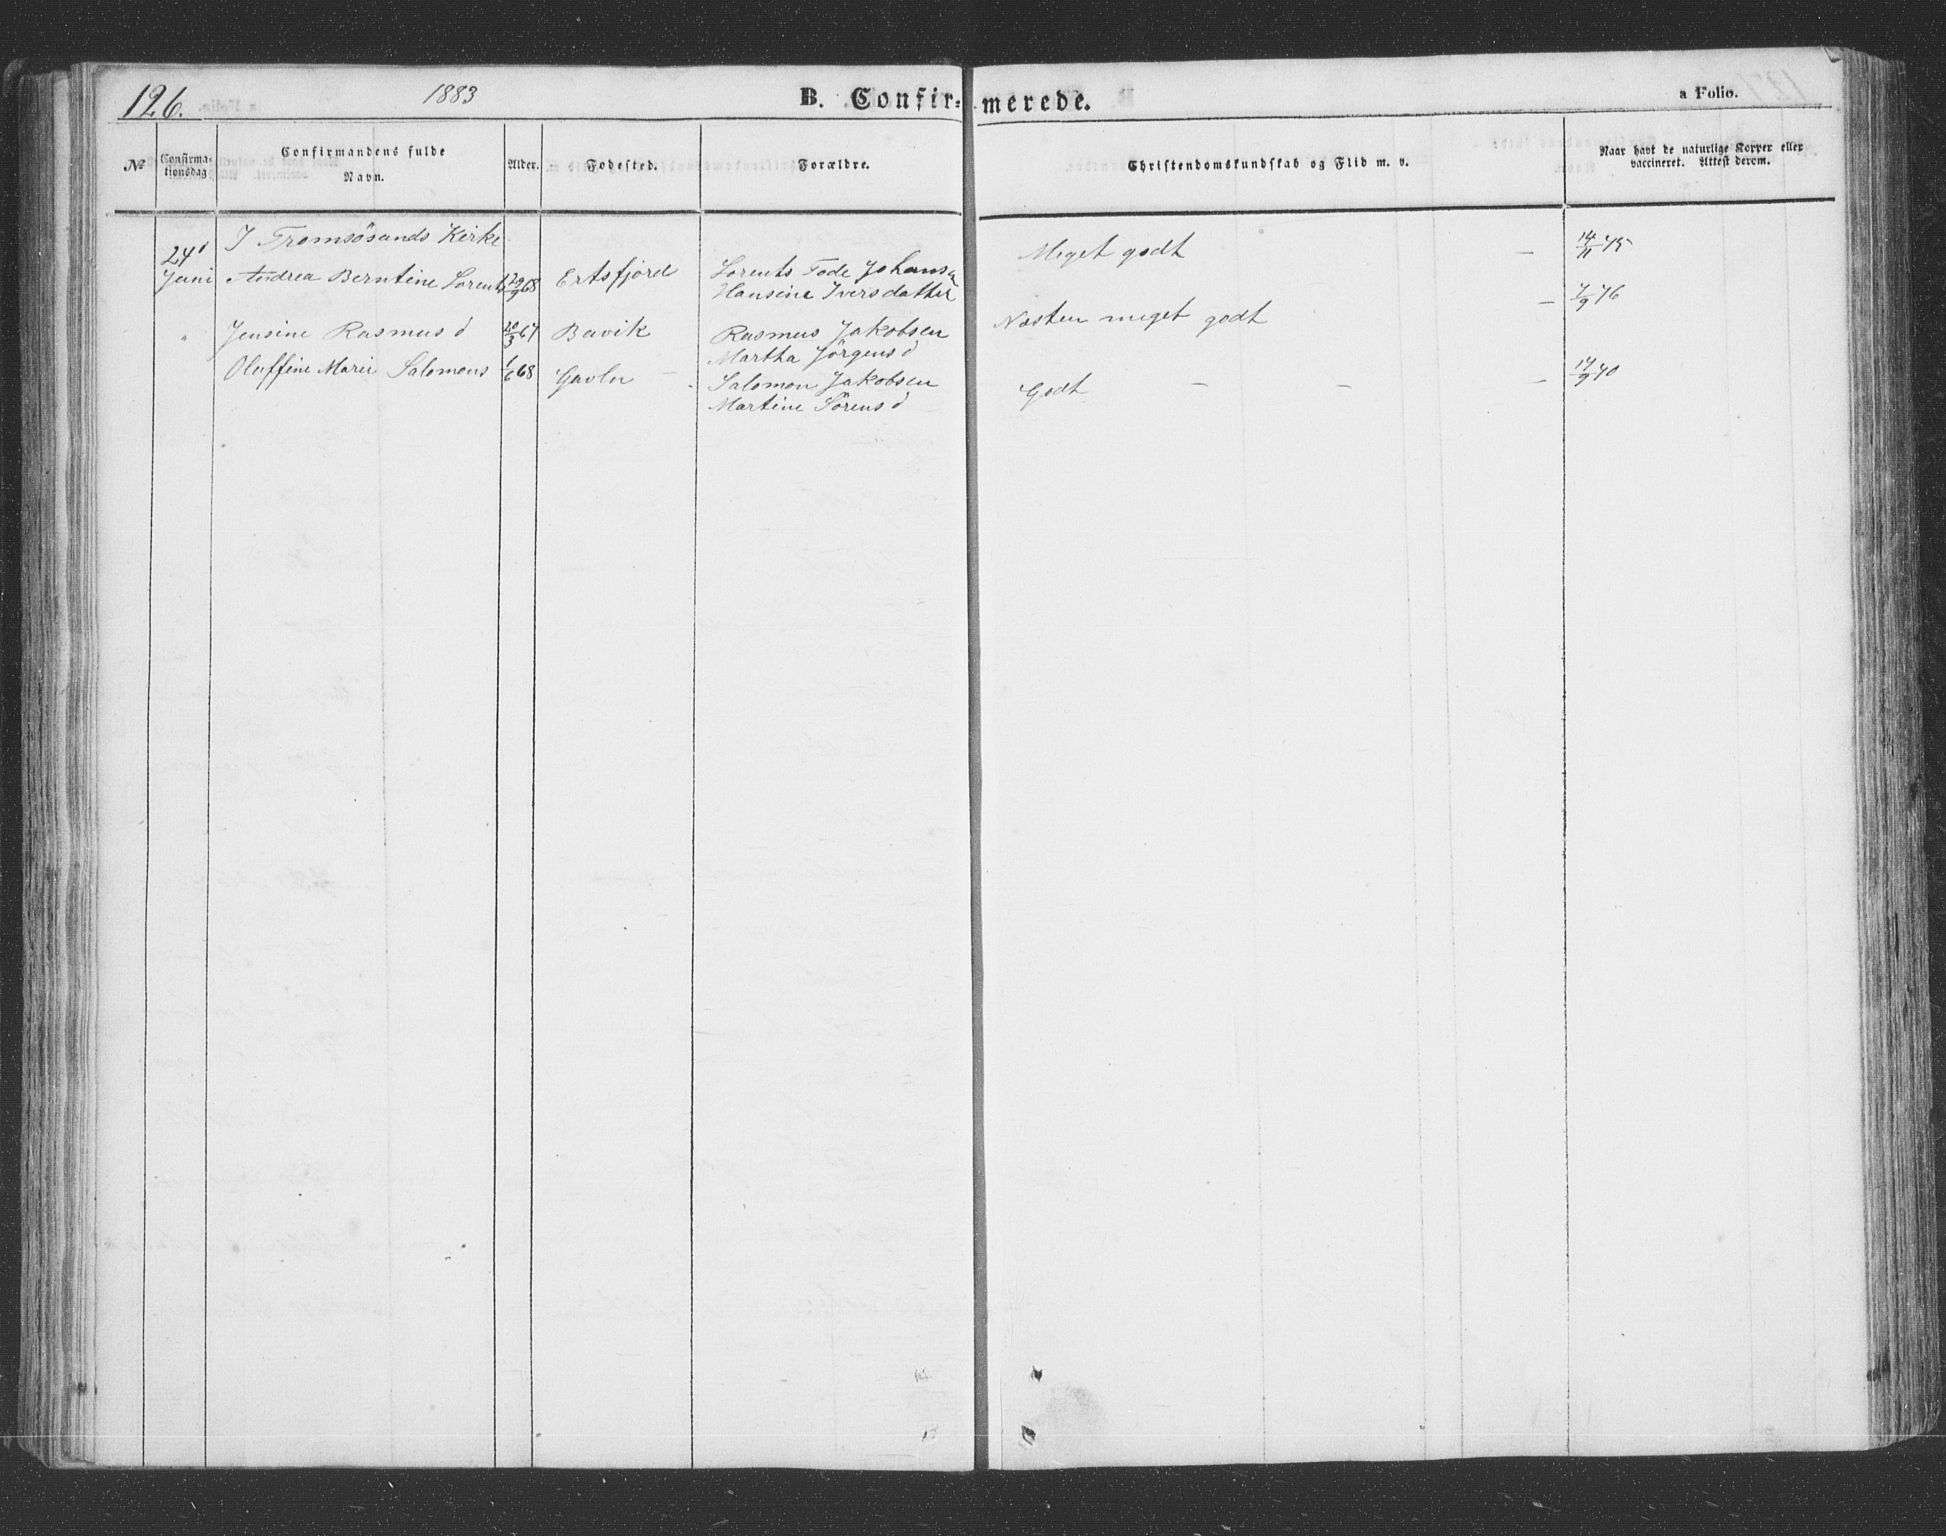 126.
1883
B. Confir=
merede.
a Folio.
No
Confirma-
tionsdag
Confirmandens fulde
Navn.
Alder.
Fødested.
Forældre.
Christendomskundskab og Flid m. v.
Naar havt de naturlige Kopper eller
vaccineret. Attest derom.
24d I Tromsösunds Kirke
Juni Andrea Berntine Lorents 29/9 68 Ertsfjord Lorents Tode Johans
Hansine Iversdatter
Meget godt — 14/11 75
" Jensine Rasmusd 20/3 67 Bavik Rasmus Jakobsen
Martha Jörgensd
Næsten meget godt — 7/9 76
Oluffine Marie Salomons 1/6 68 Gavlen Salomon Jakobsen
Martine Sörensd
Godt — — — 17/9 70